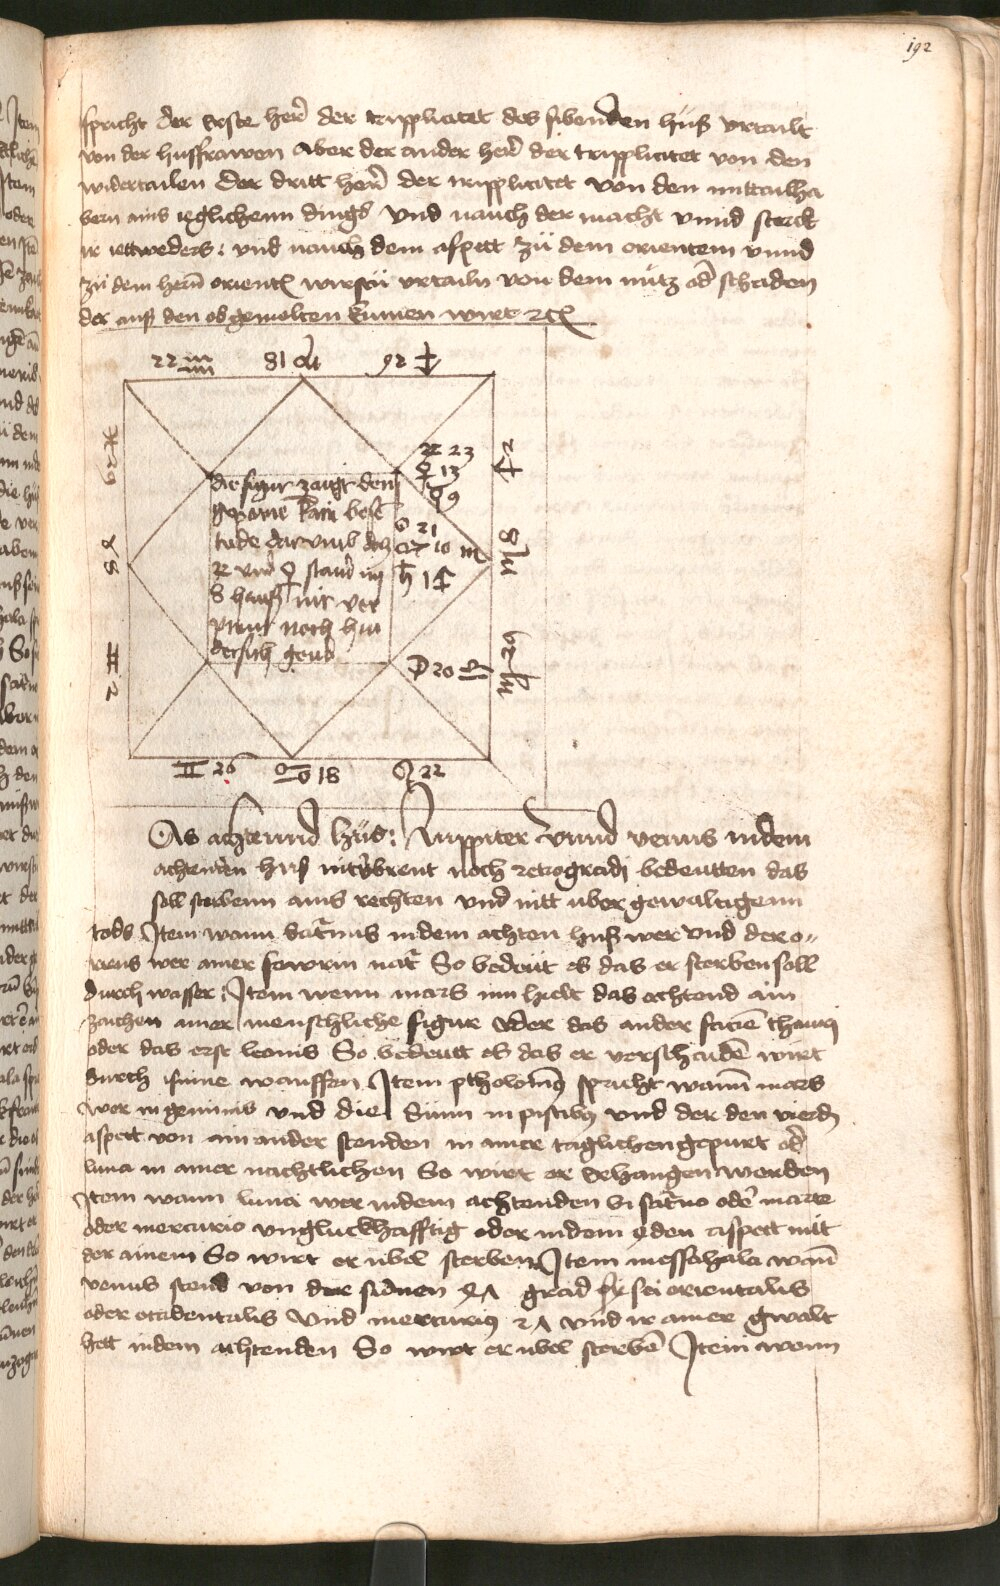 192
spricht der erste her der tripplicitet des sibenden huß vrtailt
von der hussfrawen aber der ander her der tripplicitet von den
widertailen Der dritt her der tripplicitet von den mittailha
bern ains ieglichenn dings Vnd nauch der macht vnnd sterck
ir ietweders: vnd nauch dem aspett zü dem orientem vnnd
zü dem hern orient wirstu vrtailn von dem nutz od schaden
der auß den obgemolten kumen wirt
22 ♒ 18 ♑ 26 ♐
♓ 29
♐ 2
♃ 23
♀ 13
☿ 9
♈ 8
☉ 21
♂ 10 ♏
♄ 1 ♐
♏ 8
♉ 2
☽ 20 ♎
♍ 26
die figur zaigt dem
geporne kain bese
tode darumb das
♃ vnd ♀ stand im
8 hauß nit ver
print noch hin
dersich gend
♊ 26 ♋ 18 ♌ 22
As achtennd hüs: Juppiter vnnd venus in dem
achtenden huß nit vbrent noch retrogradi bedeutten das
soll sterbenn ains rechten vnd nitt uber gewaltigenn
tods Item wann saturnus in dem achten huß wer vnd der o„
riens wer ainer natur So bedeüt es das er sterben soll
durch wasser: Item wenn mars inn hielt das achtend ain
zaichen ainer menschliche figur oder das ander facie thauri
oder das erst leonis So bedeutt es das er verschaiden wirt
durch wauffen Item ptholomeus spricht wann mars
wer in geminis vnd die Sunn in piscibus vnd der den vierden
aspett von ain ander stenden in ainer taglichen gepurt oder
luna in ainer nachtlichen So wirt er erhangen werden
Item wann luna wer in dem achtenden bi saturno oder marte
oder mercurio vngluckhafftig oder in dem aspett mitt
der ainem So wirt er ubel sterben Item messahala wann
venus stend von der sunnen grad sy sei orientalis
oder occidentalis Vnd mercurius vnd ir ainer gwalt
hett in dem achtenden So wirt er ubel sterben Item wenn